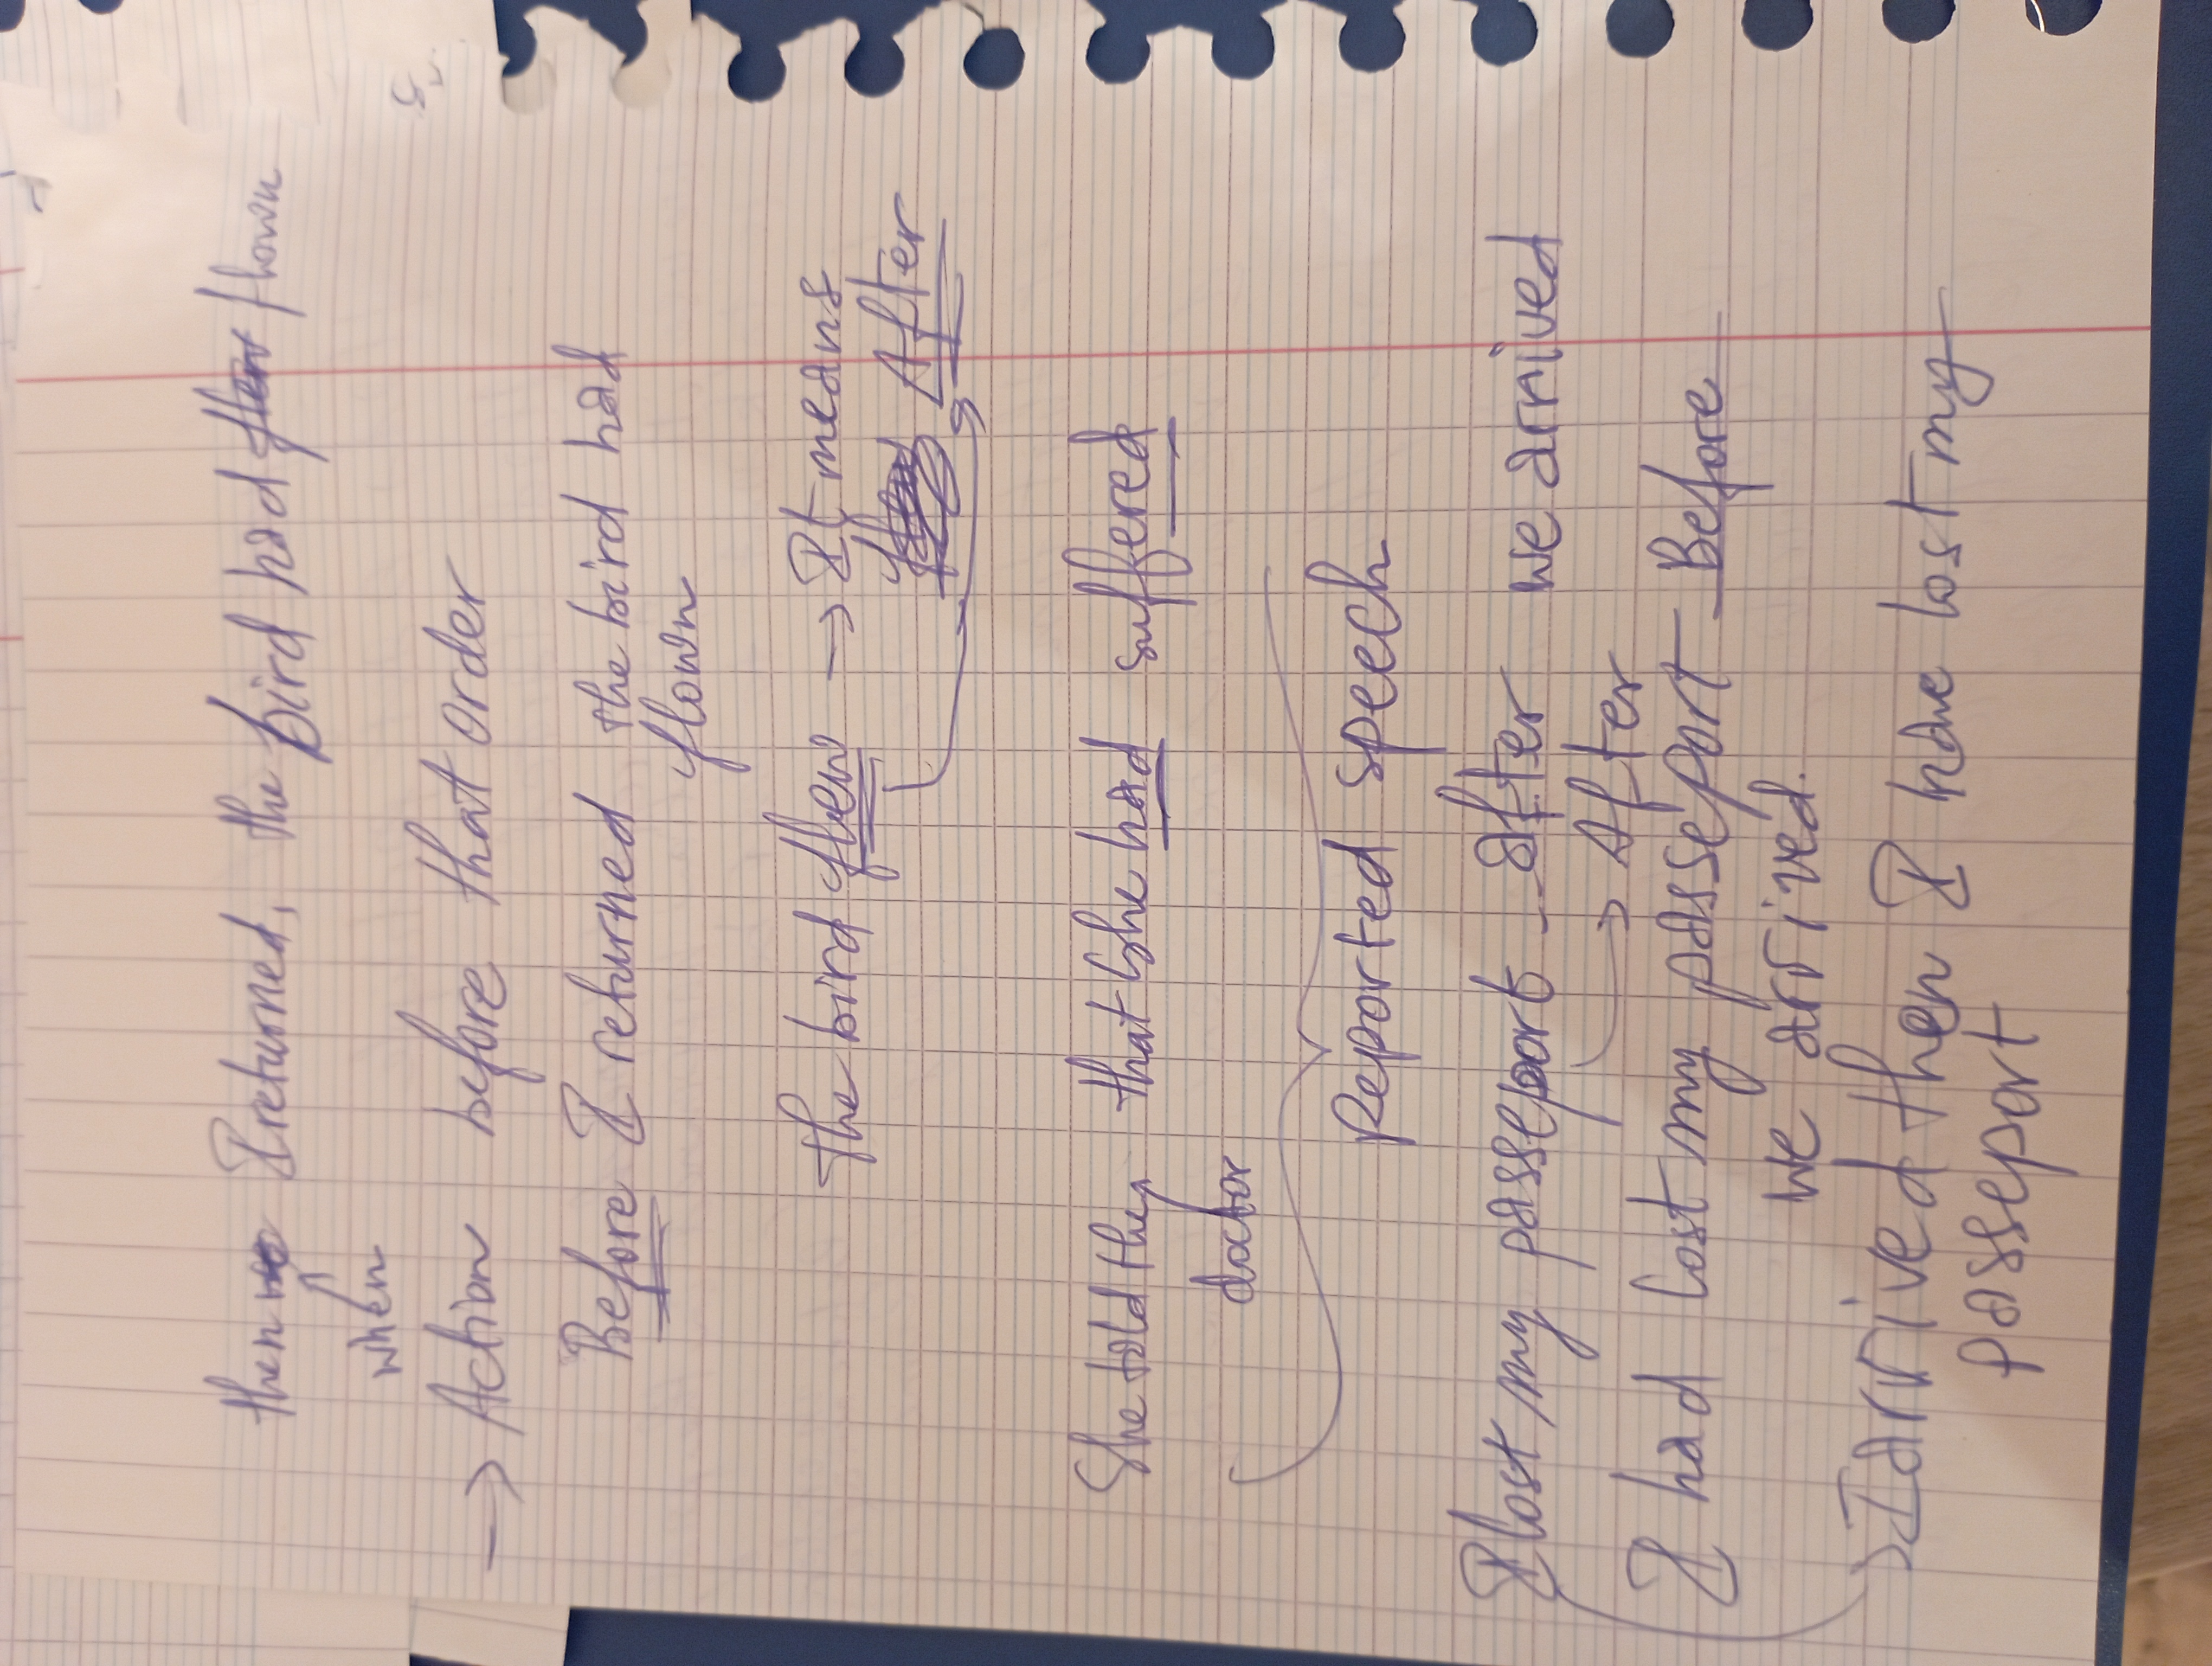 then I returned, the bird had flown
when
→ Action before that order
Before I returned the bird had
flown
The bird flew → It means
After
She told them that she had suffered
doctor
Reported speech
I lost my passeport after we arrived
→ After
I had lost my passeport Before
we arrived.
→ I arrived then I have lost my
passeport